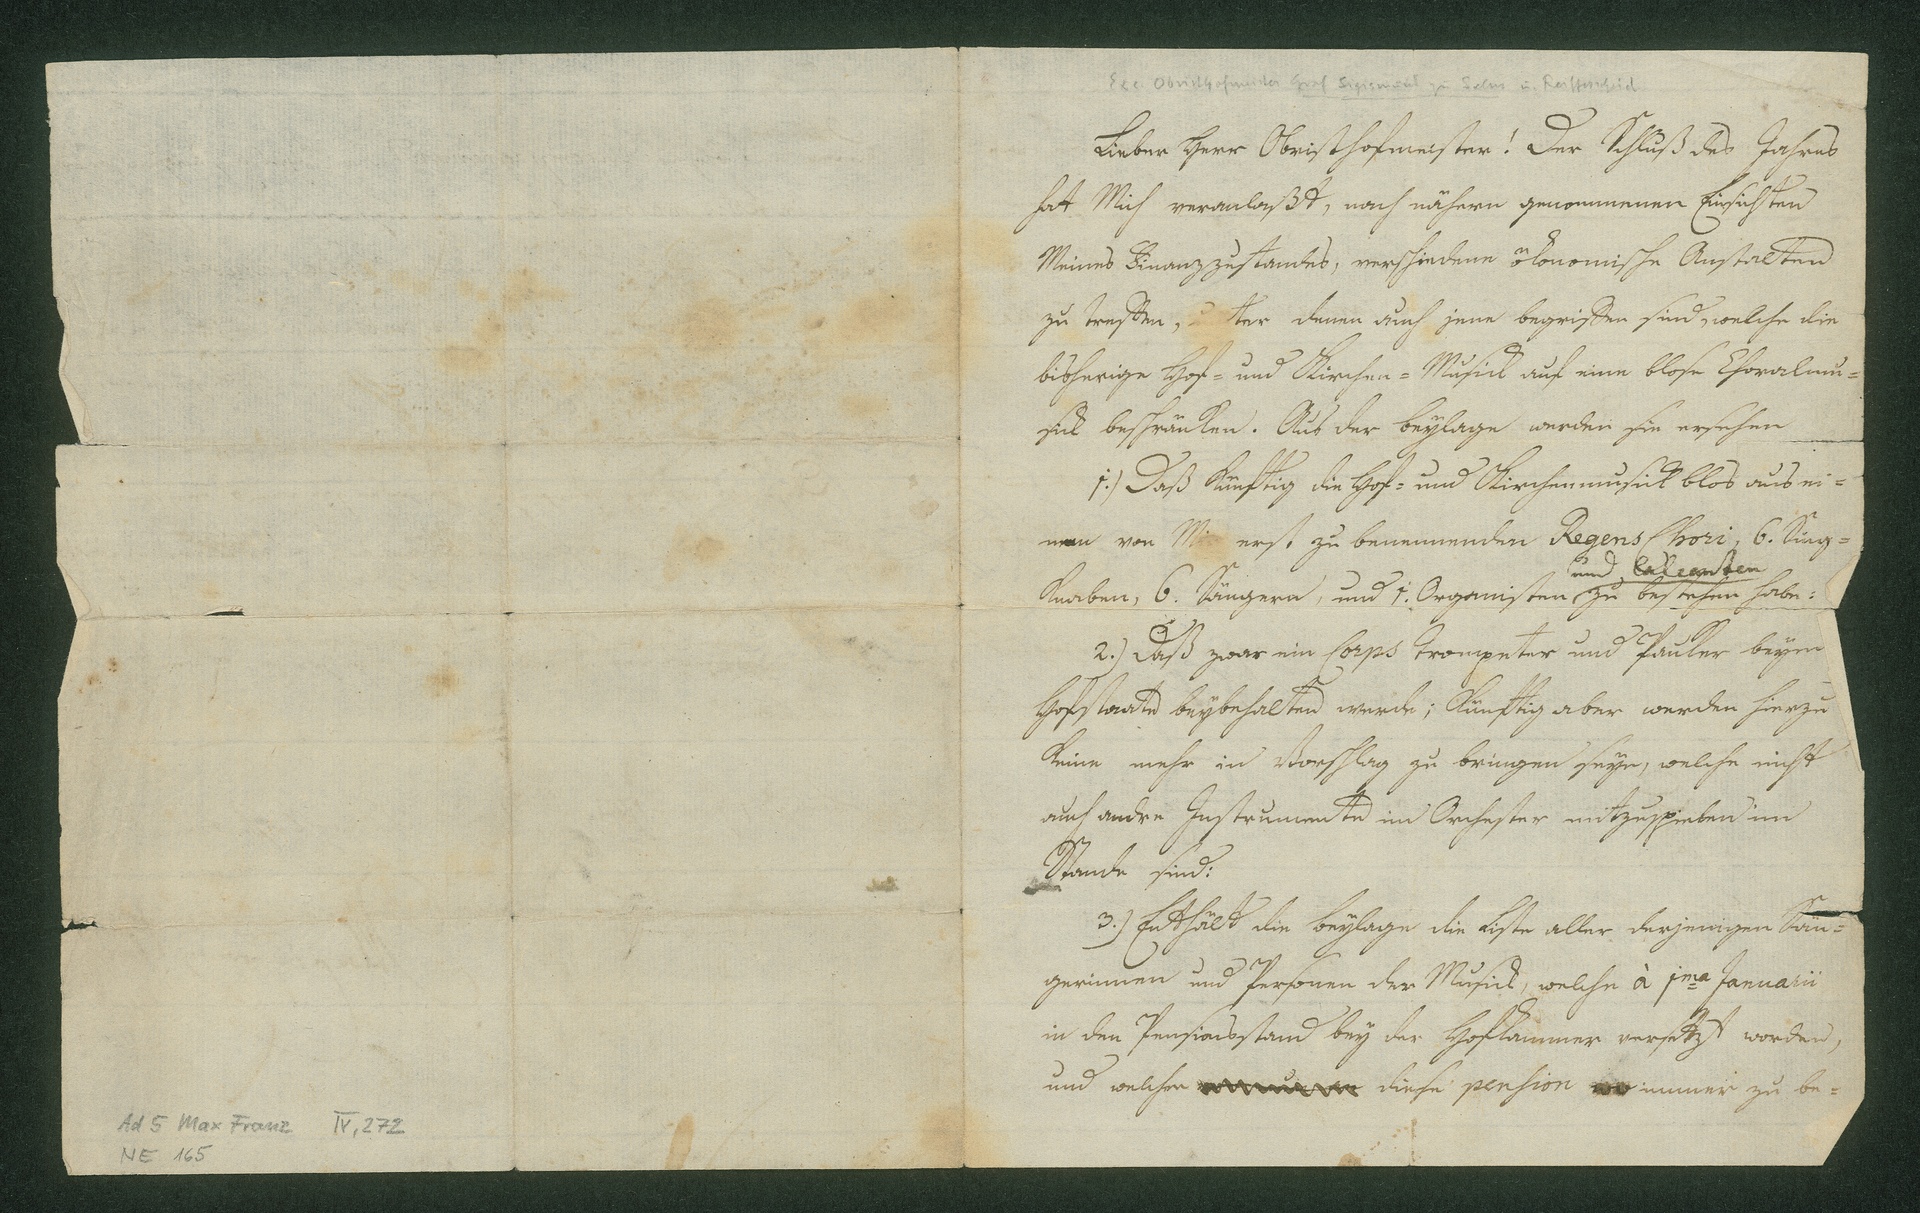 Exc. Obristhofmeister Graf Sigismund zu Salm u. Reifferscheid
Lieber Herr Obristhofmeister! Der Schluß des Jahres
hat Mich veranlaßt, nach nähern genommenen Einsichten
Meines Finanzzustandes, verschiedene ökonomische Anstalten
zu treffen, unter denen auch jene begriffen sind, welche die
bisherige Hof= und Kirchen=Musick auf eine blose Choralmu=
sick beschränken. Aus der Beylage werden sie ersehen
1.) Daß künftig die Hof= und Kirchenmusick blos aus ei=
nem von Mir erst zu benennenden Regens Chori, 6. Sing=
und
Knaben, 6. Sängern, und 1. Organisten zu bestehen habe:
2.) Daß zwar ein Corps Trompeter und Pauker beym
Hofstaate beybehalten werde; künftig aber werden hierzu
keine mehr in Vorschlag zu bringen seye, welche nicht
auch andre Instrumente im Orchester mitzuspielen im
Stande sind:
3.) Enthält die Beylage die Liste aller derjenigen Sän=
gerinnen und Personen der Musick, welche à 1ma Januarii
in den Pensionsstand bey der Hofkammer versetzt worden,
und welcher diese pension immer zu be=
Ad 5 Max Franz IV, 272
NE 165